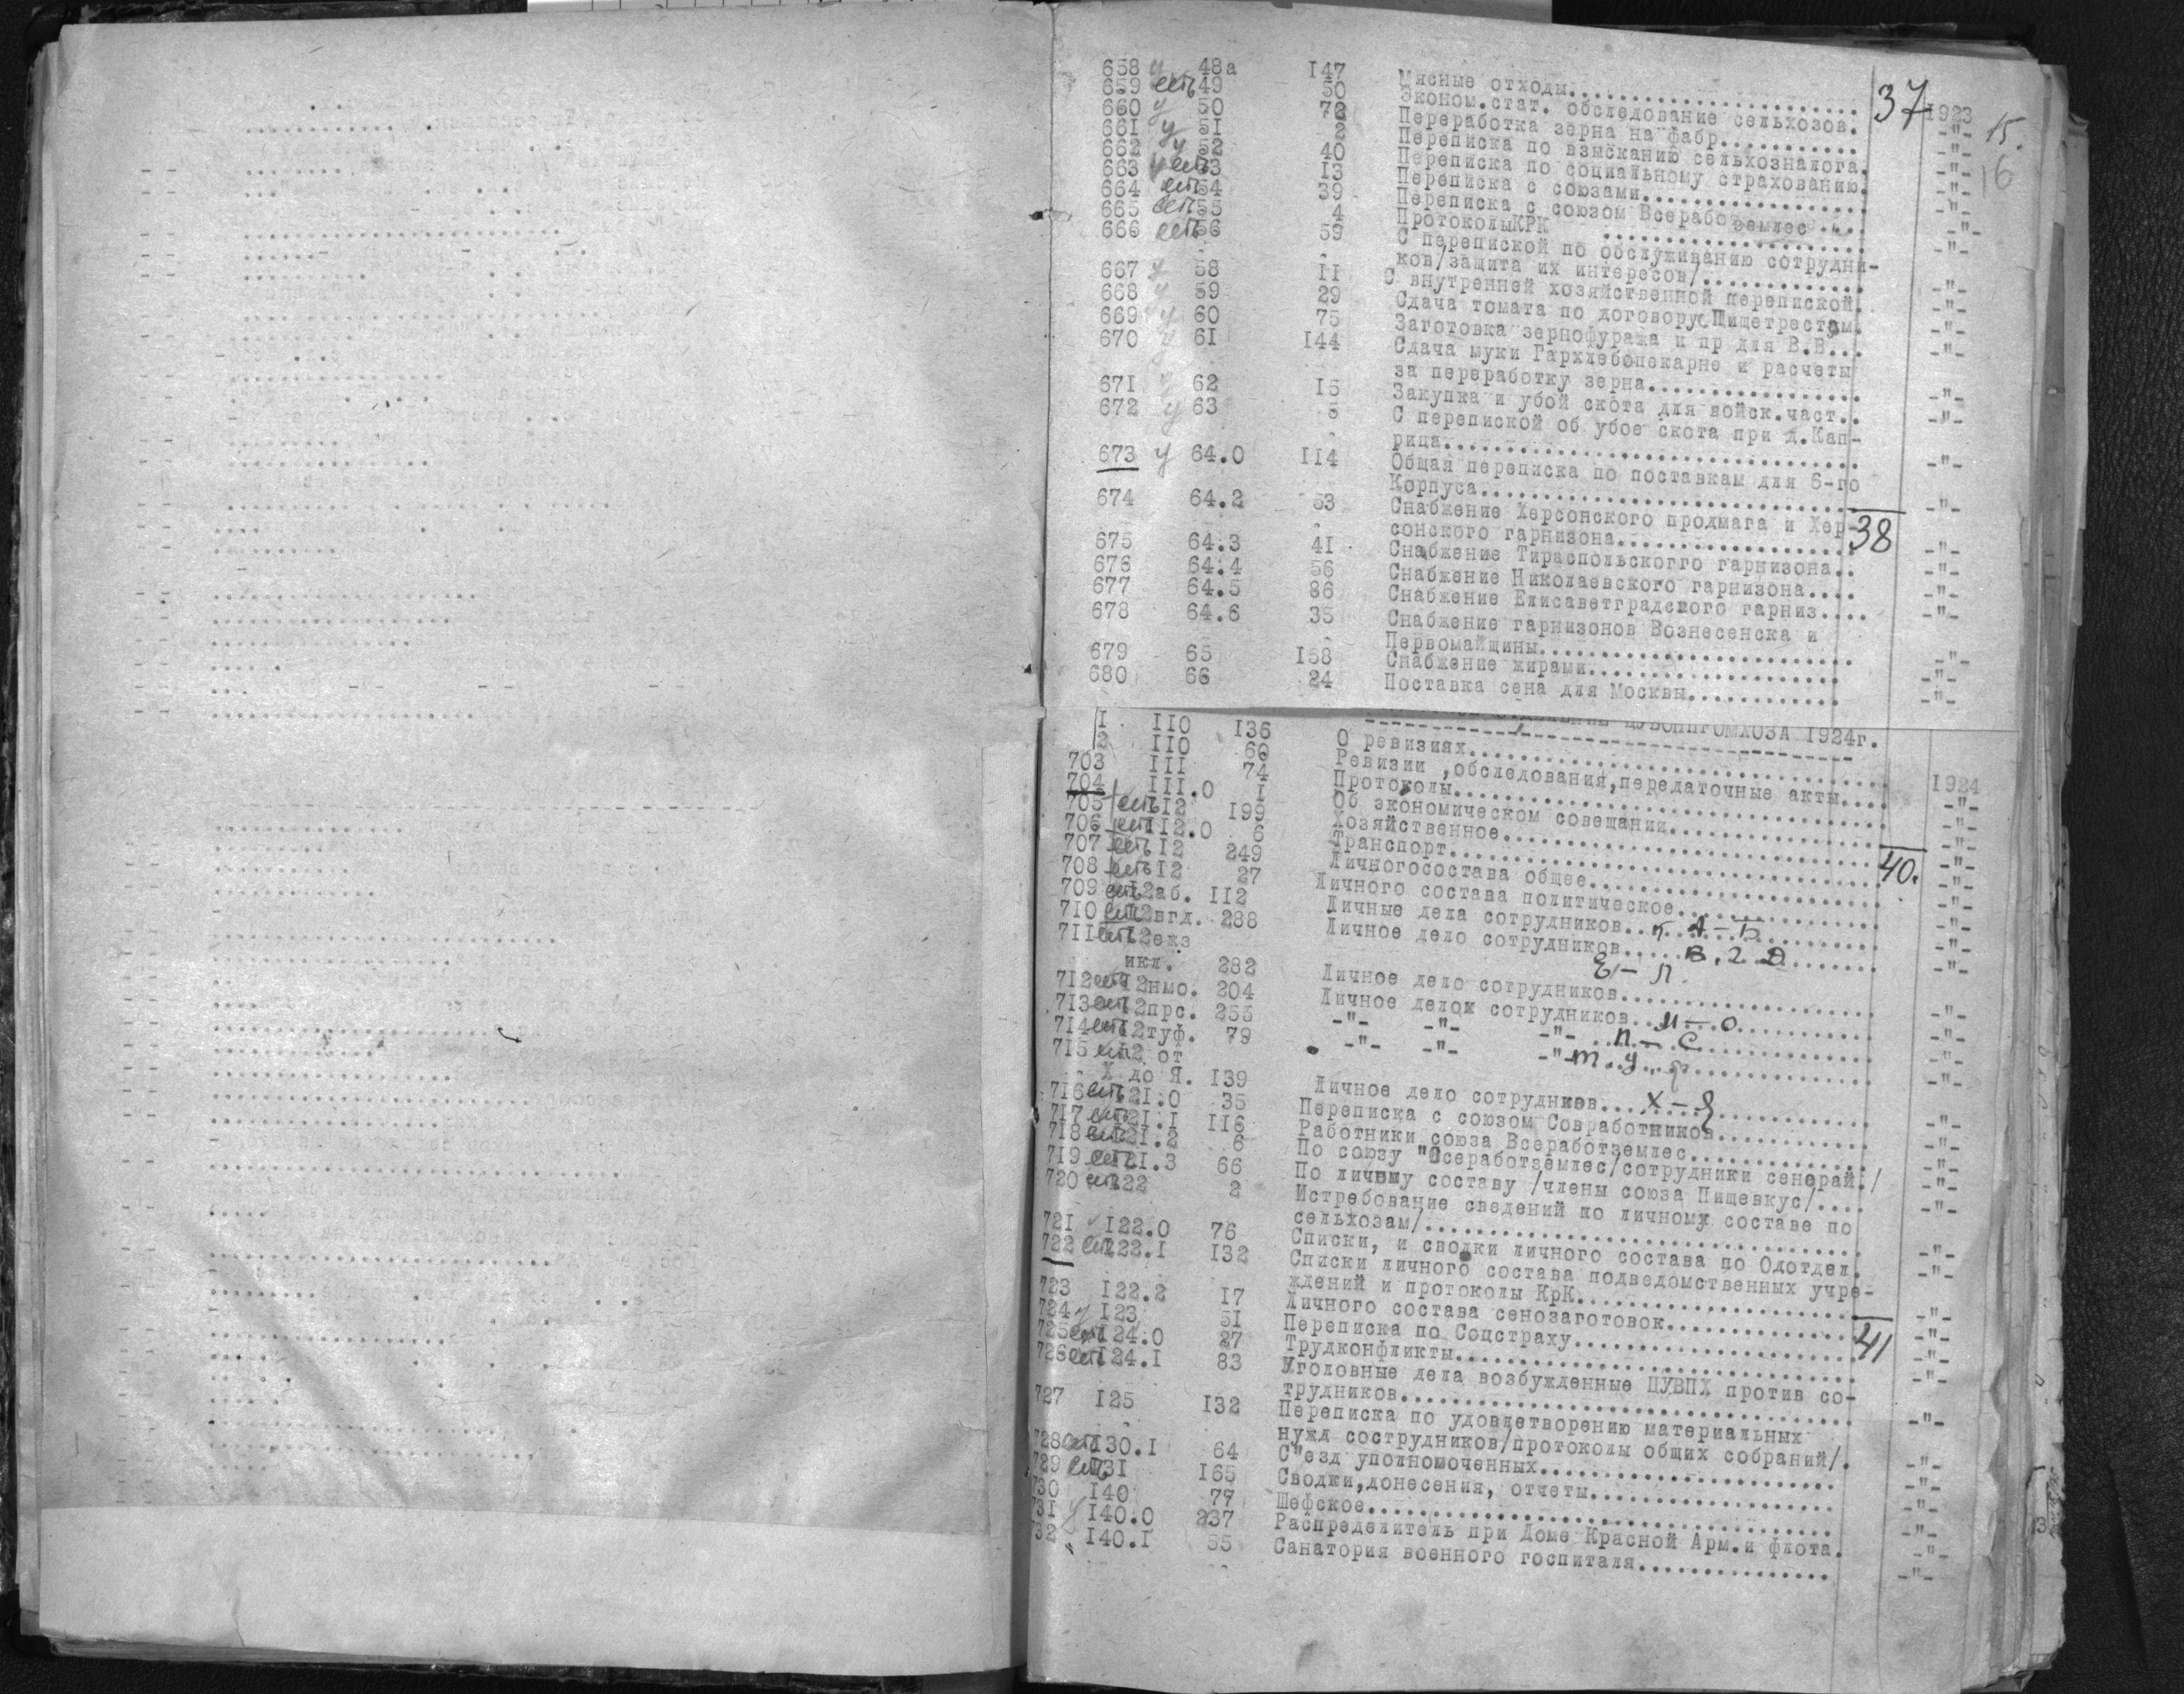 37 1923
15.
16
658 у 48а 147 Мясные отходы
659 есть 49 50 Эконом.стат. обследование сельхозов. -"-
660 у 50 72 Переработка зерна на фабр. -"-
661 у 51 2 Переписка по взысканию сельхозналога. -"-
662 у 52 40 Переписка по социальному страхованию. -"-
663 у есть 53 13 Переписка с союзами -"-
664 есть 54 39 Переписка с союзом Всерабоземлес -"-
665 есть 55 4 ПротоколыКРК -"-
666 есть 56 59 С перепиской по обслуживанию сотрудни-
ков/защита их интересов/ -"-
667 у 58 II С внутренней хозяйственной перепиской. -"-
668 у 59 29 Сдача томата по договору с Пищетрестом. -"-
669 у 60 75 Заготовка зернофуража и пр для В.В... -"-
670 у 6I I44 Сдача муки Гархлебопекарне и расчеты
за переработку зерна -"-
671 у 62 I5 Закупка и убой скота для войск.част.. -"-
672 у 63 5 С перепиской об убое скота при д.Кап-
рица -"-
673 у 64.0 II4 Общая переписка по поставкам для 6-го
Корпуса -"-
674 64.2 53 Снабжение Херсонского продмага и Хер-
38
сонского гарнизона -"-
675 64.3 4I Снабжение Тираспольскогго гарнизона.. -"-
676 64.4 56 Снабжение Николаевского гарнизона.... -"-
677 64.5 86 Снабжение Елисаветградского гарниз.... -"-
678 64.6 35 Снабжение гарнизонов Вознесенска и
Первомайщины -"-
679 65 I58 Снабжение жирами -"-
680 66 24 Поставка сена для Москвы -"-
ЦУВОЕНПРОМХОЗА I924г.
I IIO I36 О ревизиях 1924
2 IIO 60 Ревизии ,обследования,передаточные акты.... -"-
703 III 74 Протоколы -"-
704 III.0 I Об экономическом совещании -"-
705 есть II2 I99 Хозяйственное -"-
40.
706 есть II2.0 6 Транспорт -"-
707 есть I2 249 Личногосостава общее -"-
708 есть I2 27 Личного состава политическое -"-
709 есть I2аб. II2 Личные дела сотрудников А-Б -"-
710 есть I2вгд. 288 Личное дело сотрудников В, Г Д -"-
711 есть I2ежз
икл. 282 Личное дело сотрудников Е - Л. -"-
712 есть I2нмо. 204 Личное делох сотрудников М-О -"-
713 есть I2прс. 255 -"- -"- -"- П - С -"-
714 есть I2туф. 79 -"- -"- -"- Т. У. Ф -"-
715 есть I2 от
Х до Я. I39 Личное дело сотрудников Х - Я -"-
716 есть I2I.0 35 Переписка с союзом Совработников -"-
717 есть I2I.I II6 Работники союза Всеработземлес -"-
718 есть I2I.2 6 По союзу "Всеработземлес/сотрудники сенорай./ -"-
719 есть I2I.3 66 По личному составу /члены союза Пищевкус/.... -"-
720 есть I22 2 Истребование сведений по личному составе по
сельхозам/ -"-
721 I22.0 76 Списки, и сводки личного состава по Одотдел. -"-
722 есть I22.I I32 Списки личного состава подведомственных учре-
ждений и протоколы КрК -"-
723 I22.2 I7 Личного состава сенозаготовок -"-
41
724 у I23 5I Переписка по Соцстраху -"-
725 есть I24.0 27 Трудконфликты -"-
726 есть I24.I 83 Уголовные дела возбужденные ЦУВПХ против со-
трудников -"-
727 I25 I32 Переписка по удовлетворению материальных
нужд сострудников/протоколы общих собраний/. -"-
728 есть I30.I 64 С"езд уполномоченных -"-
729 есть I3I I65 Сводки,донесения, отчеты -"-
730 I40 77 Шефское -"-
731 у I40.0 237 Распределитель при Доме Красной Арм.и флота. -"-
732 I40.I 55 Санатория военного госпиталя -"-